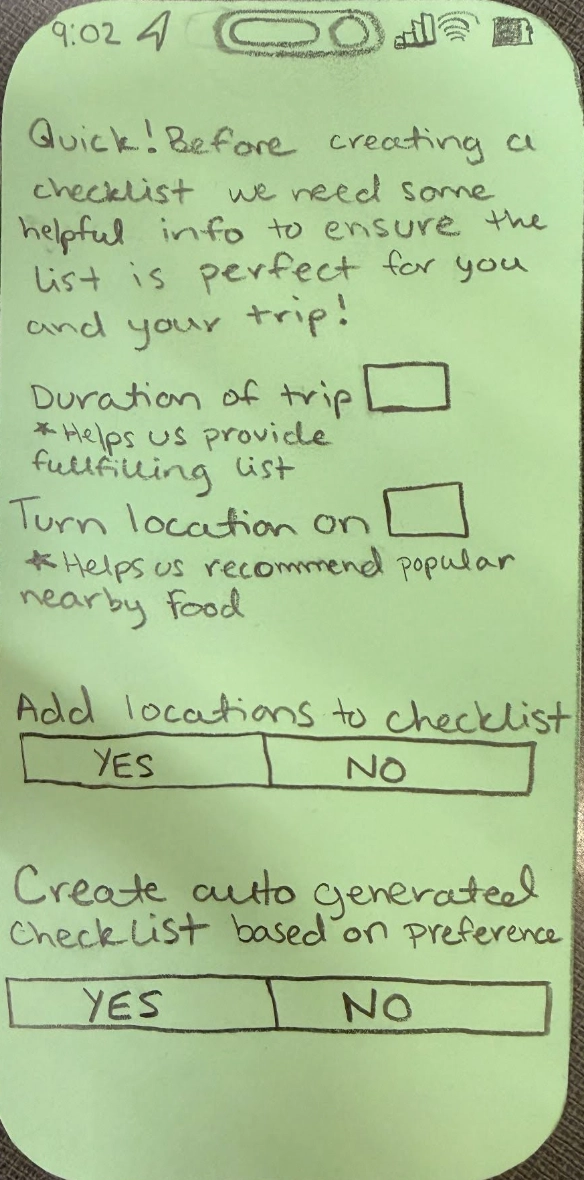 9:02
Quick! Before creating a
checklist we need some
helpful info to ensure the
list is perfect for you
and your trip!
Duration of trip
*Helps us provide
fullfilling list
Turn location on
*Helps us recommend popular
nearby food
Add locations to checklist
YES NO
Create auto generated
checklist based on preference
YES NO